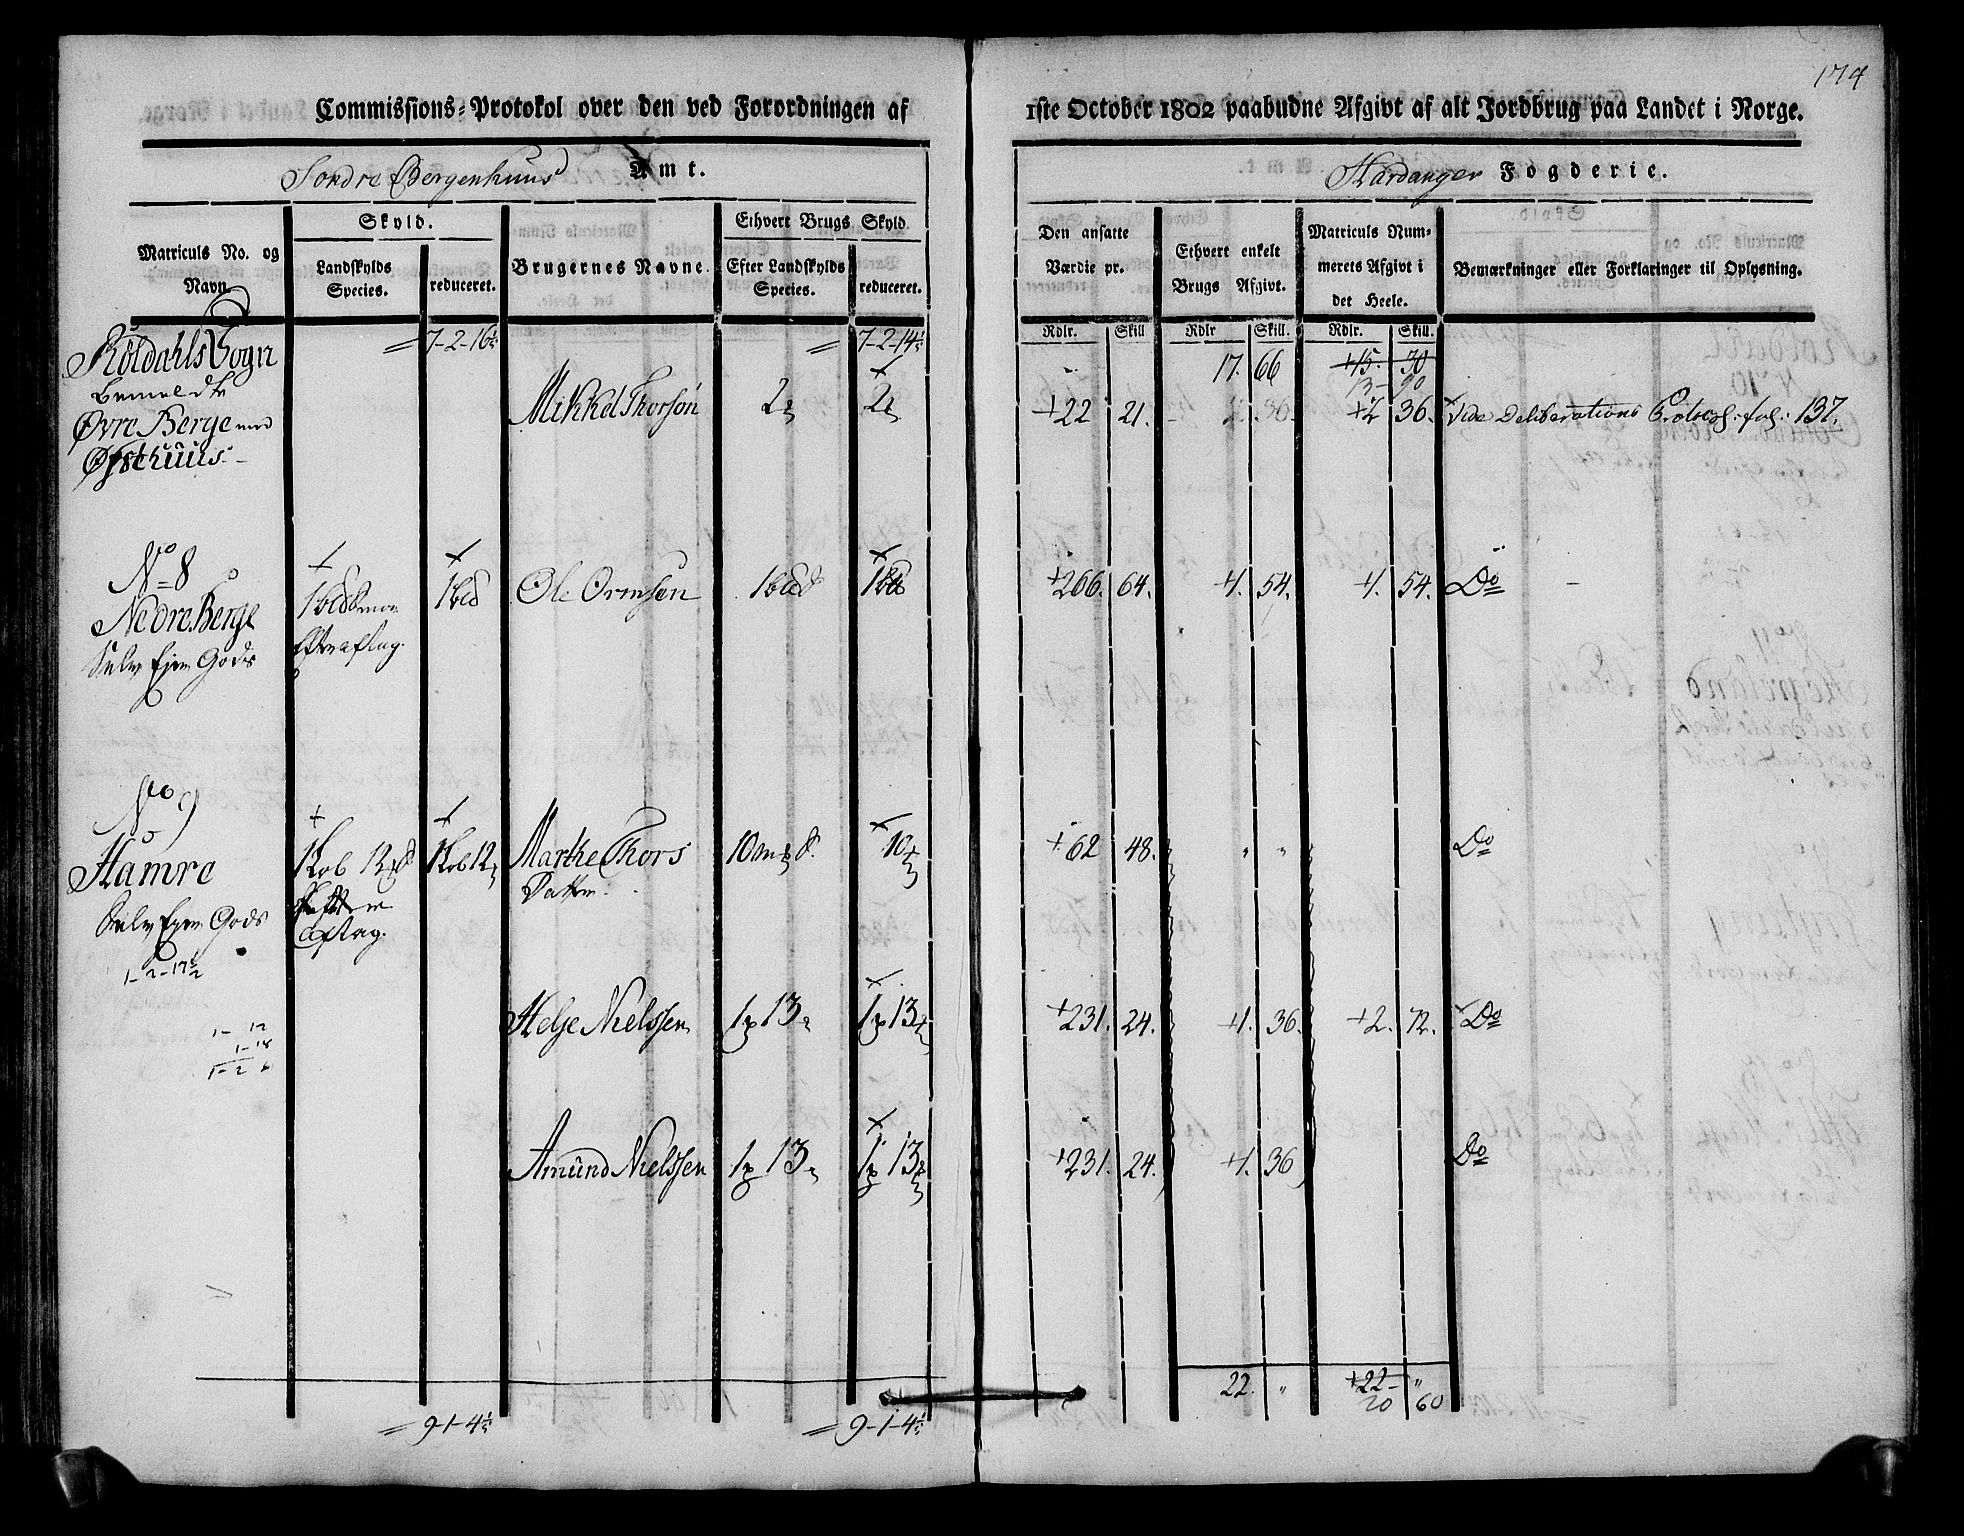 174
Commissions=Protokol over den ved Forordningen af 1ste October 1802 paabudne Afgivt af alt Jordbrug paa Landet i Norge.
Søndre Bergenhuus Amt. Hardanger Fogderie.
Matriculs No. og Navn.
Skyld.
Landskylds Species.
reduceret.
Brugernes Navne.
Ethvert Brugs Skyld.
Efter Landskylds Species.
reduceret.
Den ansatte Værdie pr.
Ethvert enkelt Brugs Afgivt.
Matriculs Nummerets Afgivt i det Heele.
Bemærkninger eller Forklaringer til Oplysning.
Rdlr. Skill Rdlr Skill. Rdlr. Skill.
Røldahls Sogn 7-2-16½ 7-2-14½ 17. 66 +15. 30
13-90
bemeldte
Øvre Berge med Mikkel Thorsøn 2 2 +22 21. 36. +2 36. Vide Deliberations Protocol: fol: 137.
Østhuus.
No 8
Nedre Berge Ole Ormsen +266. 64. +1. 54. +1. 54. Do
Selv Ejer Gods
No 9
Hamre 1 Lob 12 1 Lob 12 Marthe Thors 10 10 +62 48. " " Do
Datter.
Selv Ejer Gods aftag.
1-2-17½
Helje Nielssen 1 13 1 13 +231. 24. +1. 36. +2. 72. Do
1- 12
1-18
1-2 6
Amund Nielssen 1 13 1 13 +231. 24. +1. 36 Do
22. " +22- "
20 60
9-1-4½ 9-1-4½